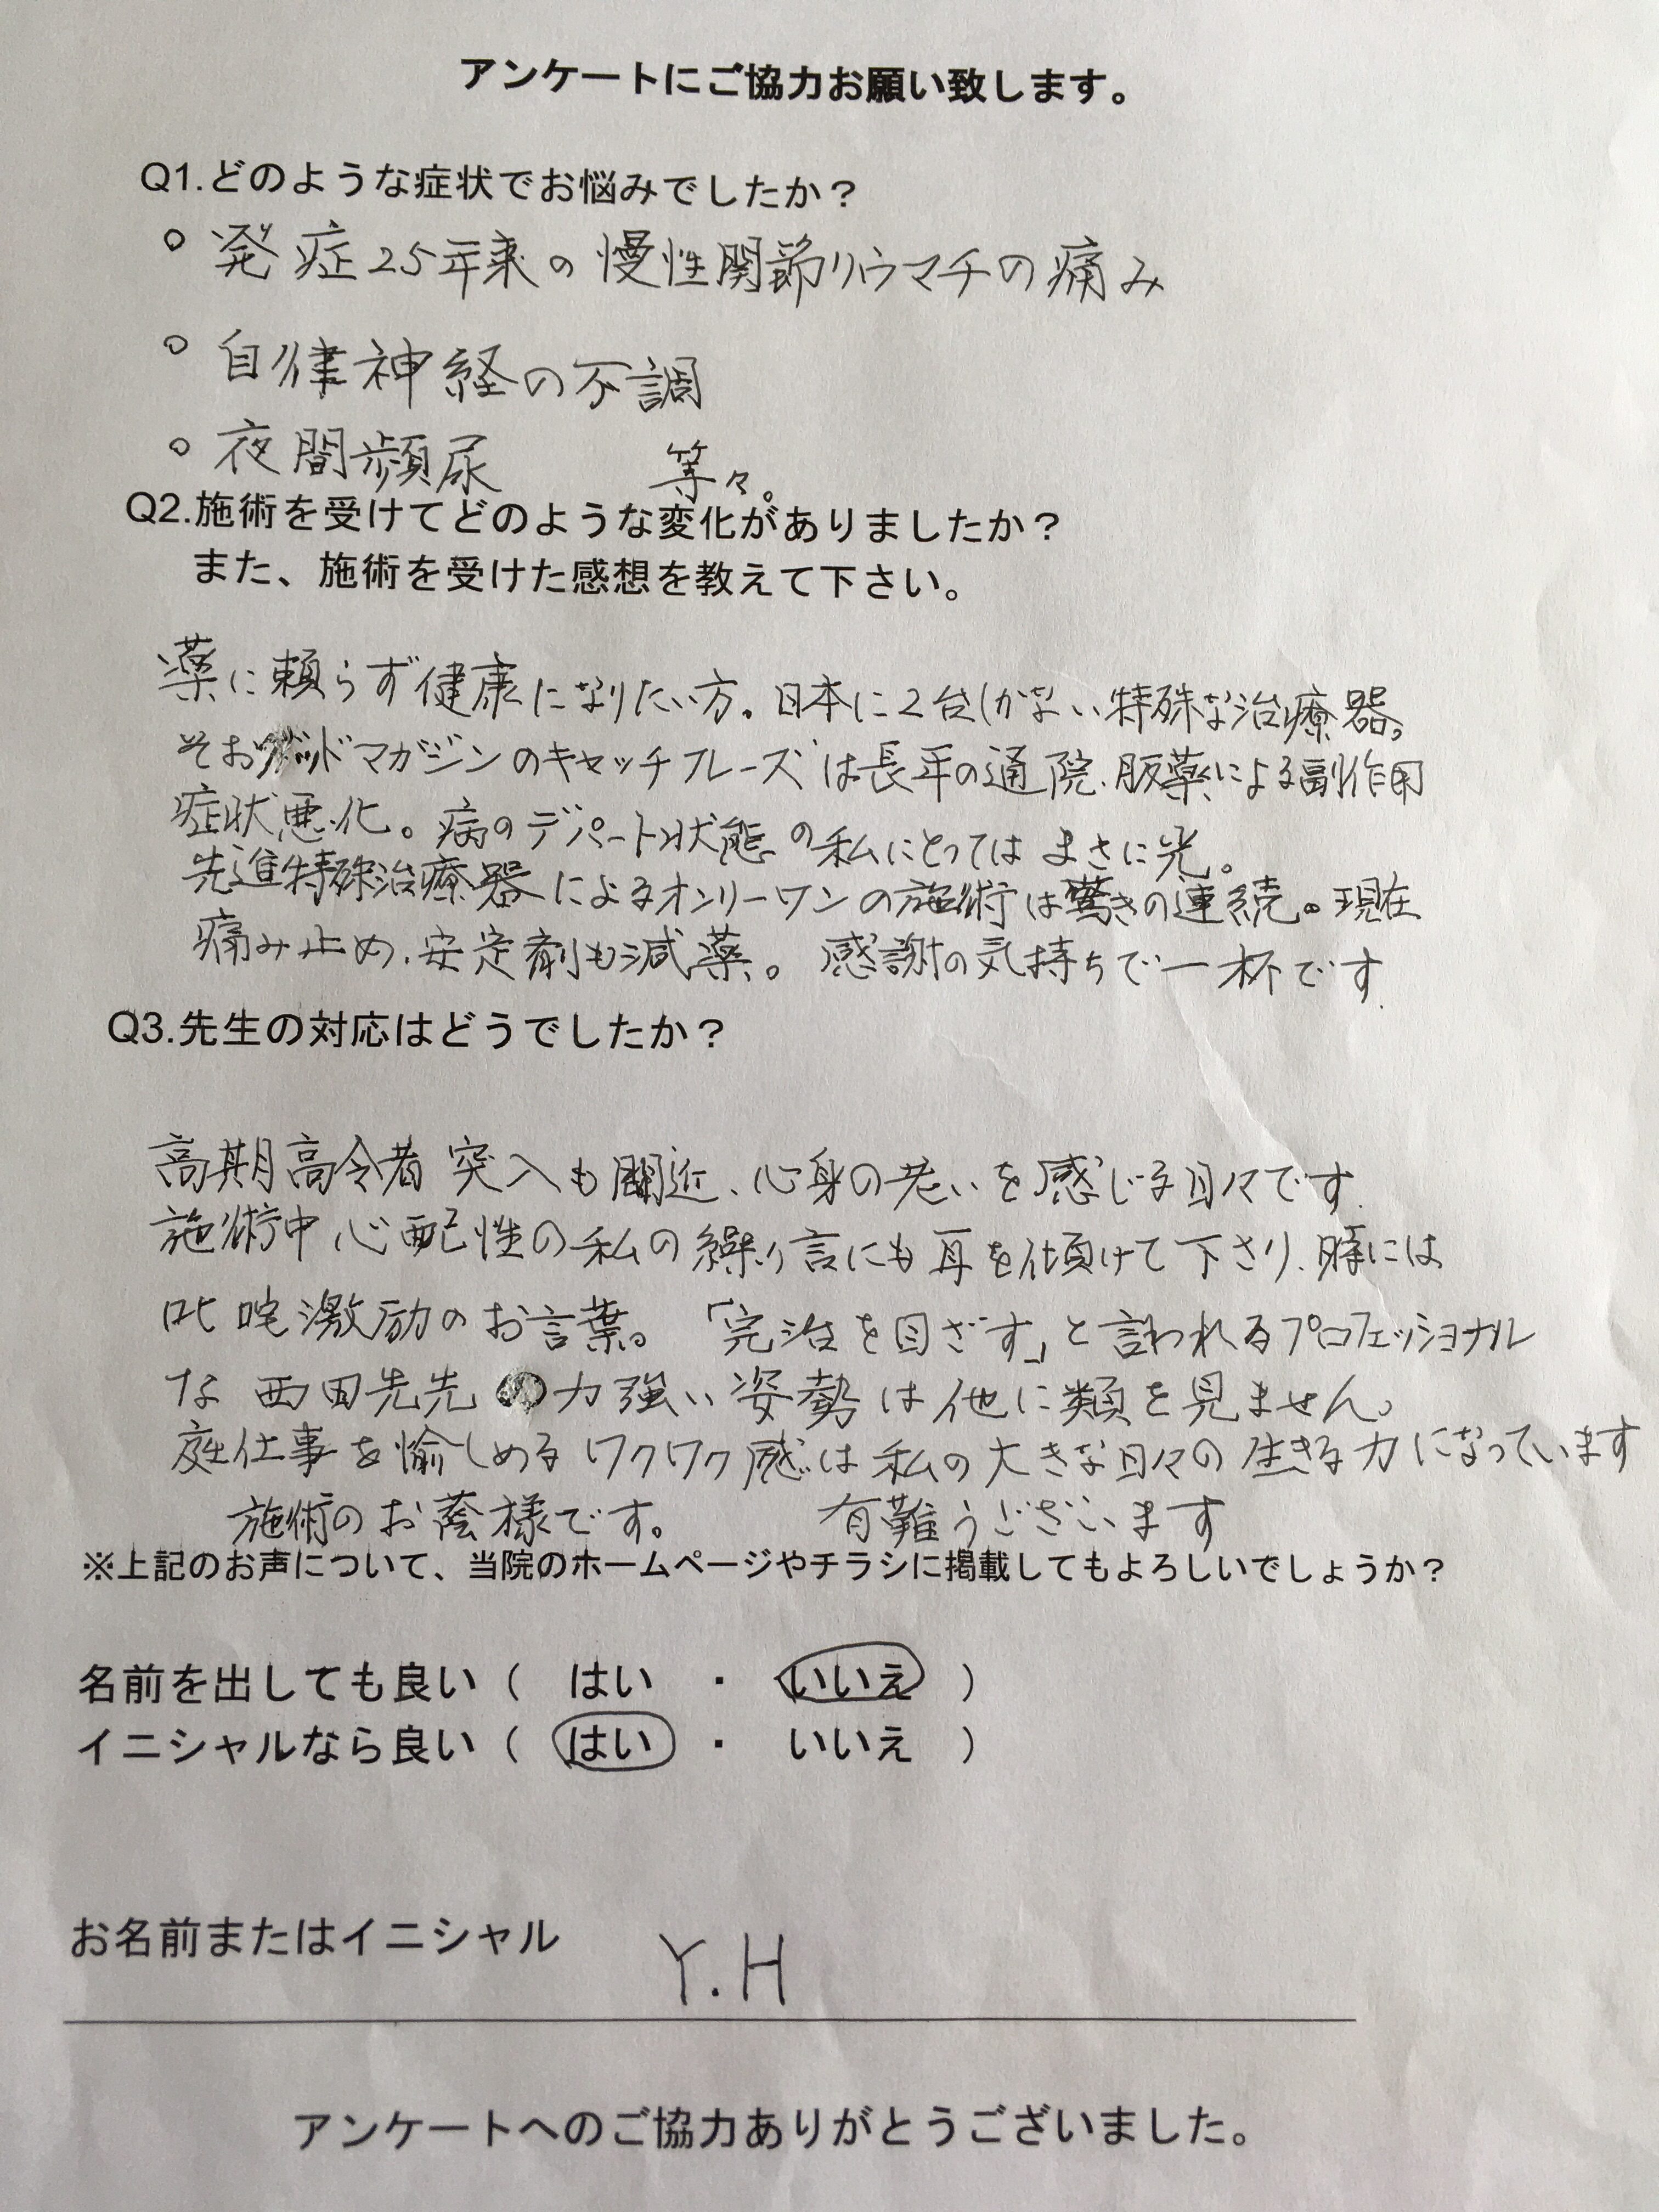 アンケートにご協力お願い致します。
Q1.どのような症状でお悩みでしたか？
○ 発症25年来の慢性関節リウマチの痛み
○ 自律神経の不調
○ 夜間頻尿 等々。
Q2.施術を受けてどのような変化がありましたか？
また、施術を受けた感想を教えて下さい。
薬に頼らず健康になりたい方。日本に2台しかない特殊な治療器。
マガジンのキャッチフレーズは長年の通院、服薬による副作用
症状悪化。病のデパート状態の私にとってはまさに光。
先進特殊治療器によるオンリーワンの施術は驚きの連続。現在
痛み止め、安定剤も減薬。感謝の気持ちで一杯です.
Q3.先生の対応はどうでしたか？
高期高令者突入も間近、心身の老いを感じる日々です.
施術中心配性の私の繰り言にも耳を傾けて下さり、時には
叱咤激励のお言葉。「完治を目ざす」と言われるプロフェッショナル
な西田先先の力強い姿勢は他に類を見ません。
庭仕事を愉しめるワクワク感は私の大きな日々の生きる力になっています
施術のお蔭様です。 有難うございます
※上記のお声について、当院のホームページやチラシに掲載してもよろしいでしょうか？
名前を出しても良い（ はい ・ いいえ ）
イニシャルなら良い（ はい ・ いいえ ）
お名前またはイニシャル Y.H
アンケートへのご協力ありがとうございました。